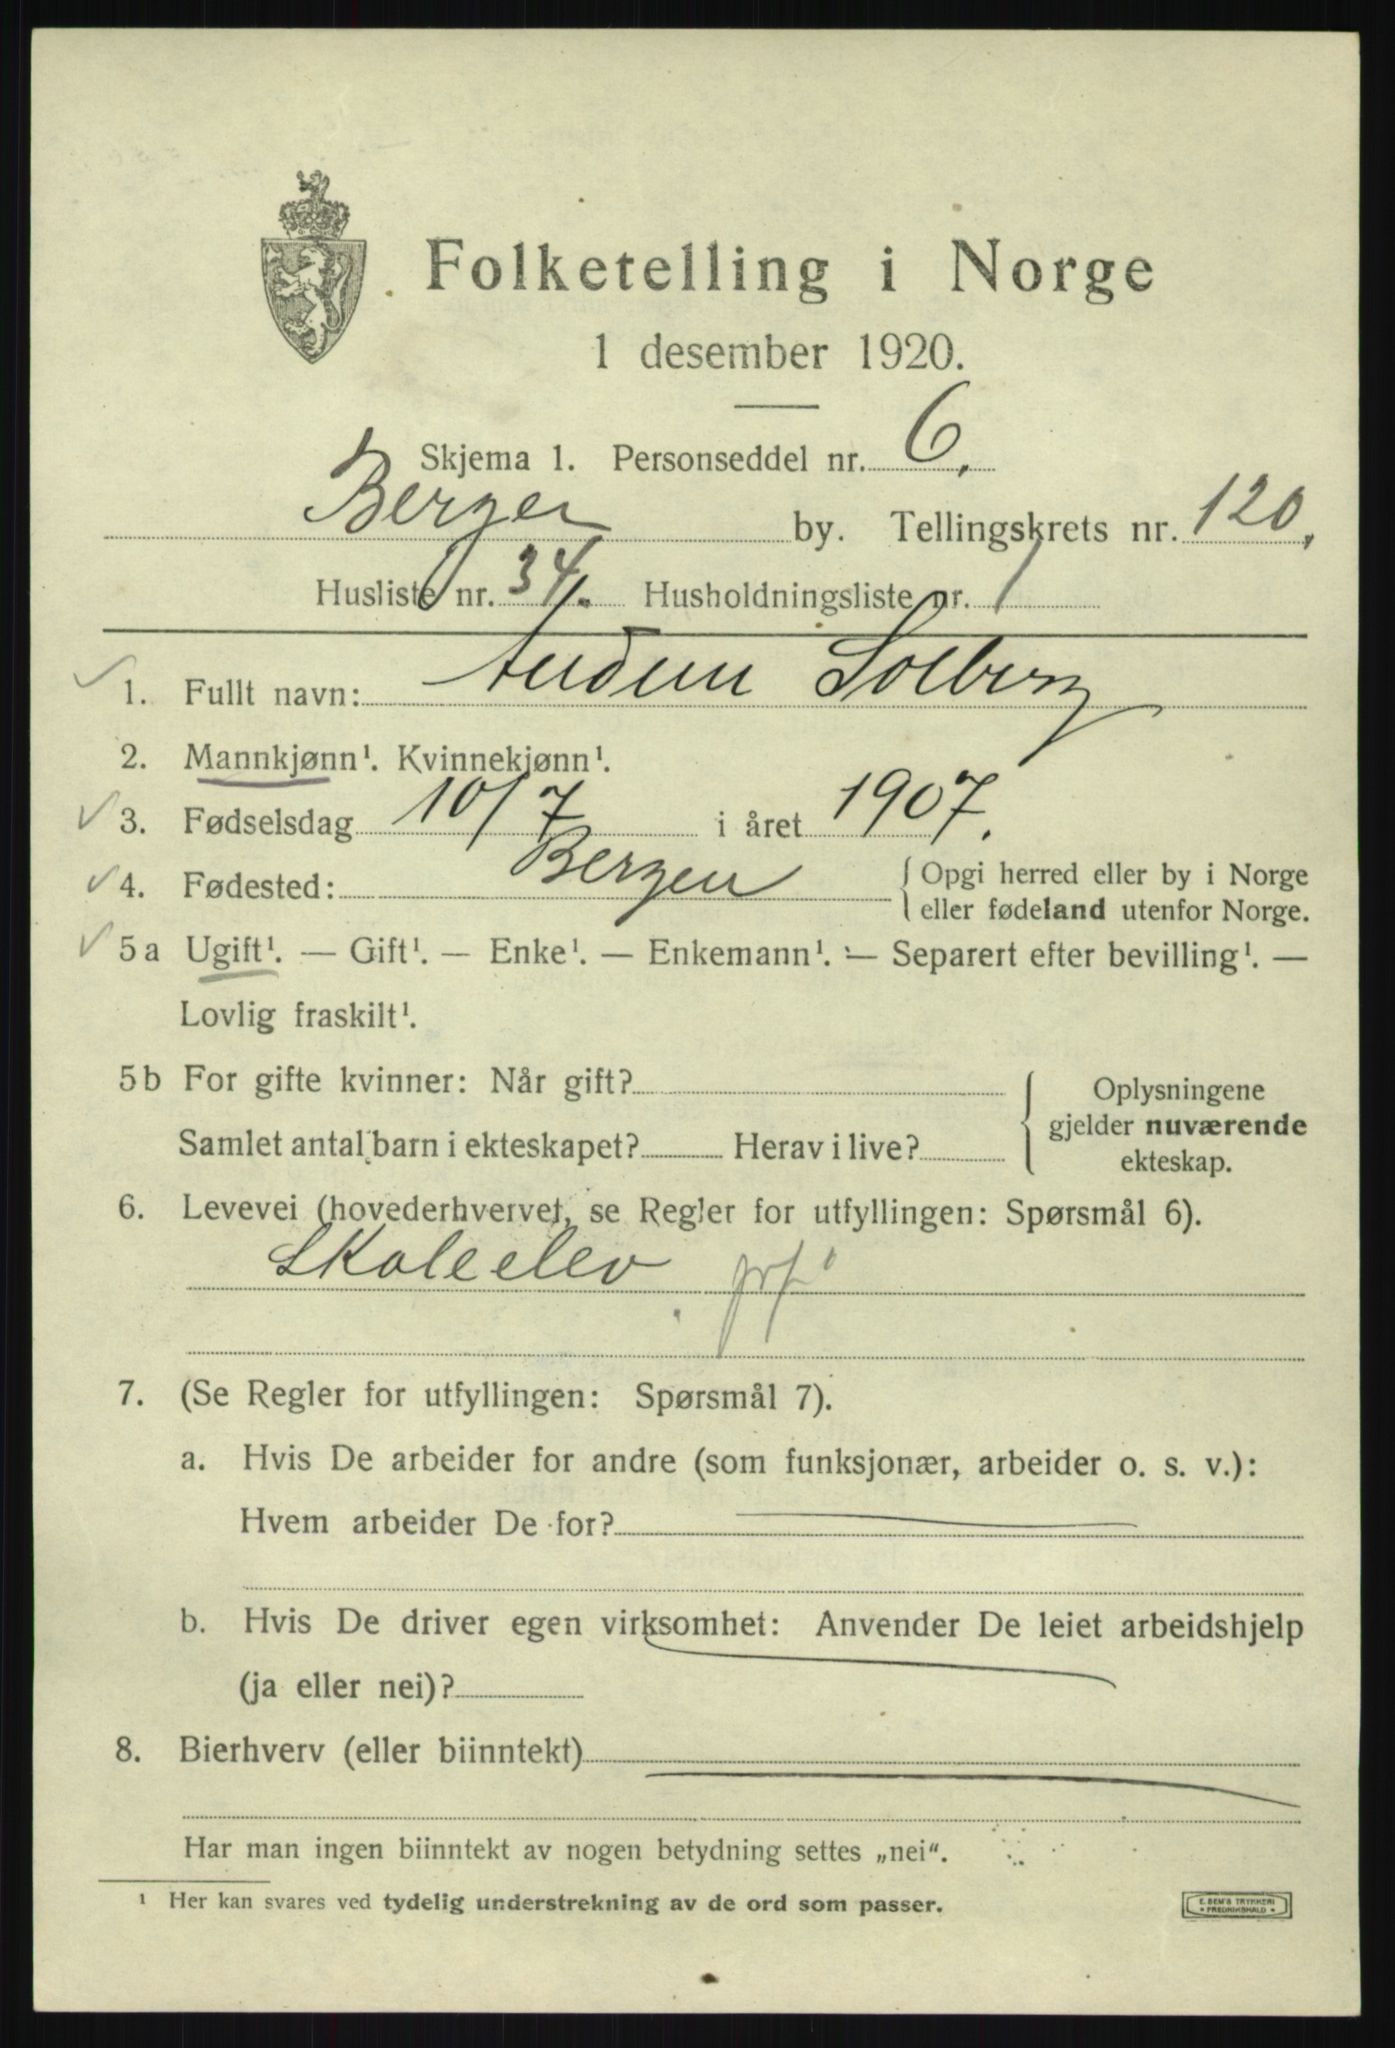 Folketelling i Norge
1 desember 1920.
Skjema 1. Personseddel nr. 6.
Bergen by. Tellingskrets nr. 120.
Husliste nr. 34. Husholdningsliste nr. 1
1. Fullt navn: Audun Solberg
2. Mannkjønn¹. Kvinnekjønn¹.
3. Fødselsdag 10/7 i året 1907.
4. Fødested: Bergen { Opgi herred eller by i Norge
eller fødeland utenfor Norge.
5a Ugift¹. — Gift¹. — Enke¹. — Enkemann¹. — Separert efter bevilling¹. —
Lovlig fraskilt¹.
5b For gifte kvinner: Når gift?
Samlet antal barn i ekteskapet? Herav i live?
{ Oplysningene
gjelder nuværende
ekteskap.
6. Levevei (hovederhvervet, se Regler for utfyllingen: Spørsmål 6).
Skoleelev
7. (Se Regler for utfyllingen: Spørsmål 7).
a. Hvis De arbeider for andre (som funksjonær, arbeider o. s. v.):
Hvem arbeider De for?
b. Hvis De driver egen virksomhet: Anvender De leiet arbeidshjelp
(ja eller nei)?
8. Bierhverv (eller biinntekt)
Har man ingen biinntekt av nogen betydning settes „nei“.
¹ Her kan svares ved tydelig understrekning av de ord som passer.
E. SEM'S TRYKKERI
• FREDRIKSHALD •